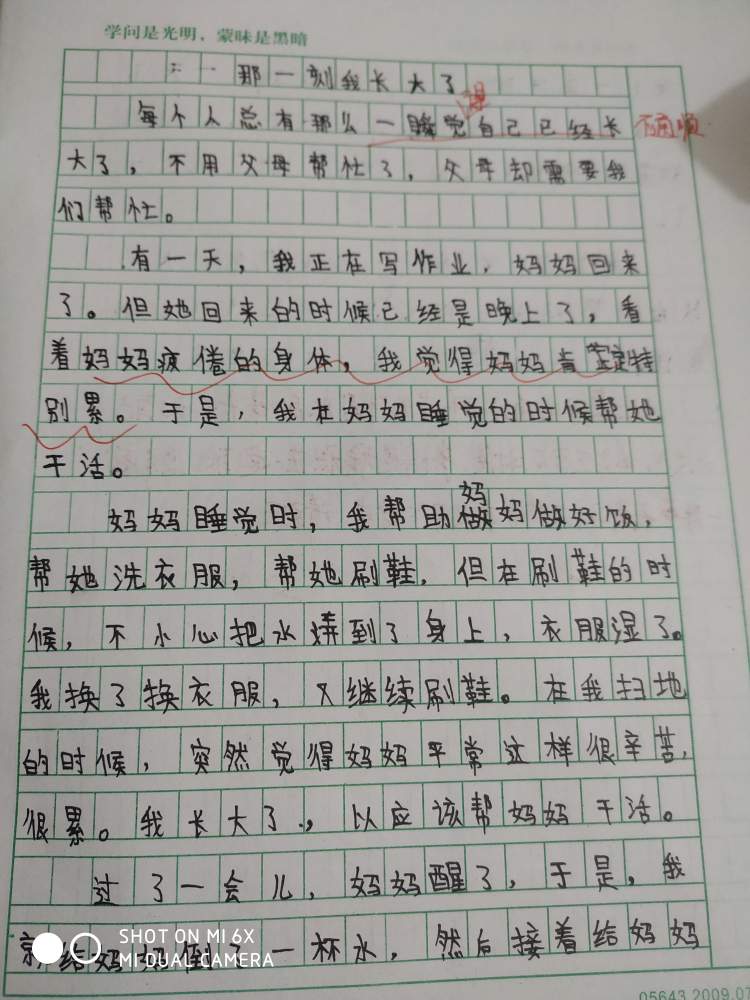 学问是光明，蒙昧是黑暗
那一刻我长大了
得
每个人总有那么一睡觉自己已经长
不通顺
大了，不用父母帮忙了，父母却需要我
们帮忙。
有一天，我正在写作业，妈妈回来
了。但她回来的时候已经是晚上了，看
着妈妈疲倦的身体，我觉得妈妈肯定特
别累。于是，我在妈妈睡觉的时候帮她
干活。
妈
妈妈睡觉时，我帮助做妈做好饭，
帮她洗衣服，帮她刷鞋，但在刷鞋的时
候，不小心把水溅到了身上，衣服湿了。
我换了换衣服，又继续刷鞋。在我扫地
的时候，突然觉得妈妈平常这样很辛苦，
很累。我长大了，以应该帮妈妈干活。
过了一会儿，妈妈醒了，于是，我
给妈妈倒了一杯水，然后接着给妈妈
SHOT ON MI 6X
MI DUAL CAMERA
05643.2009.07